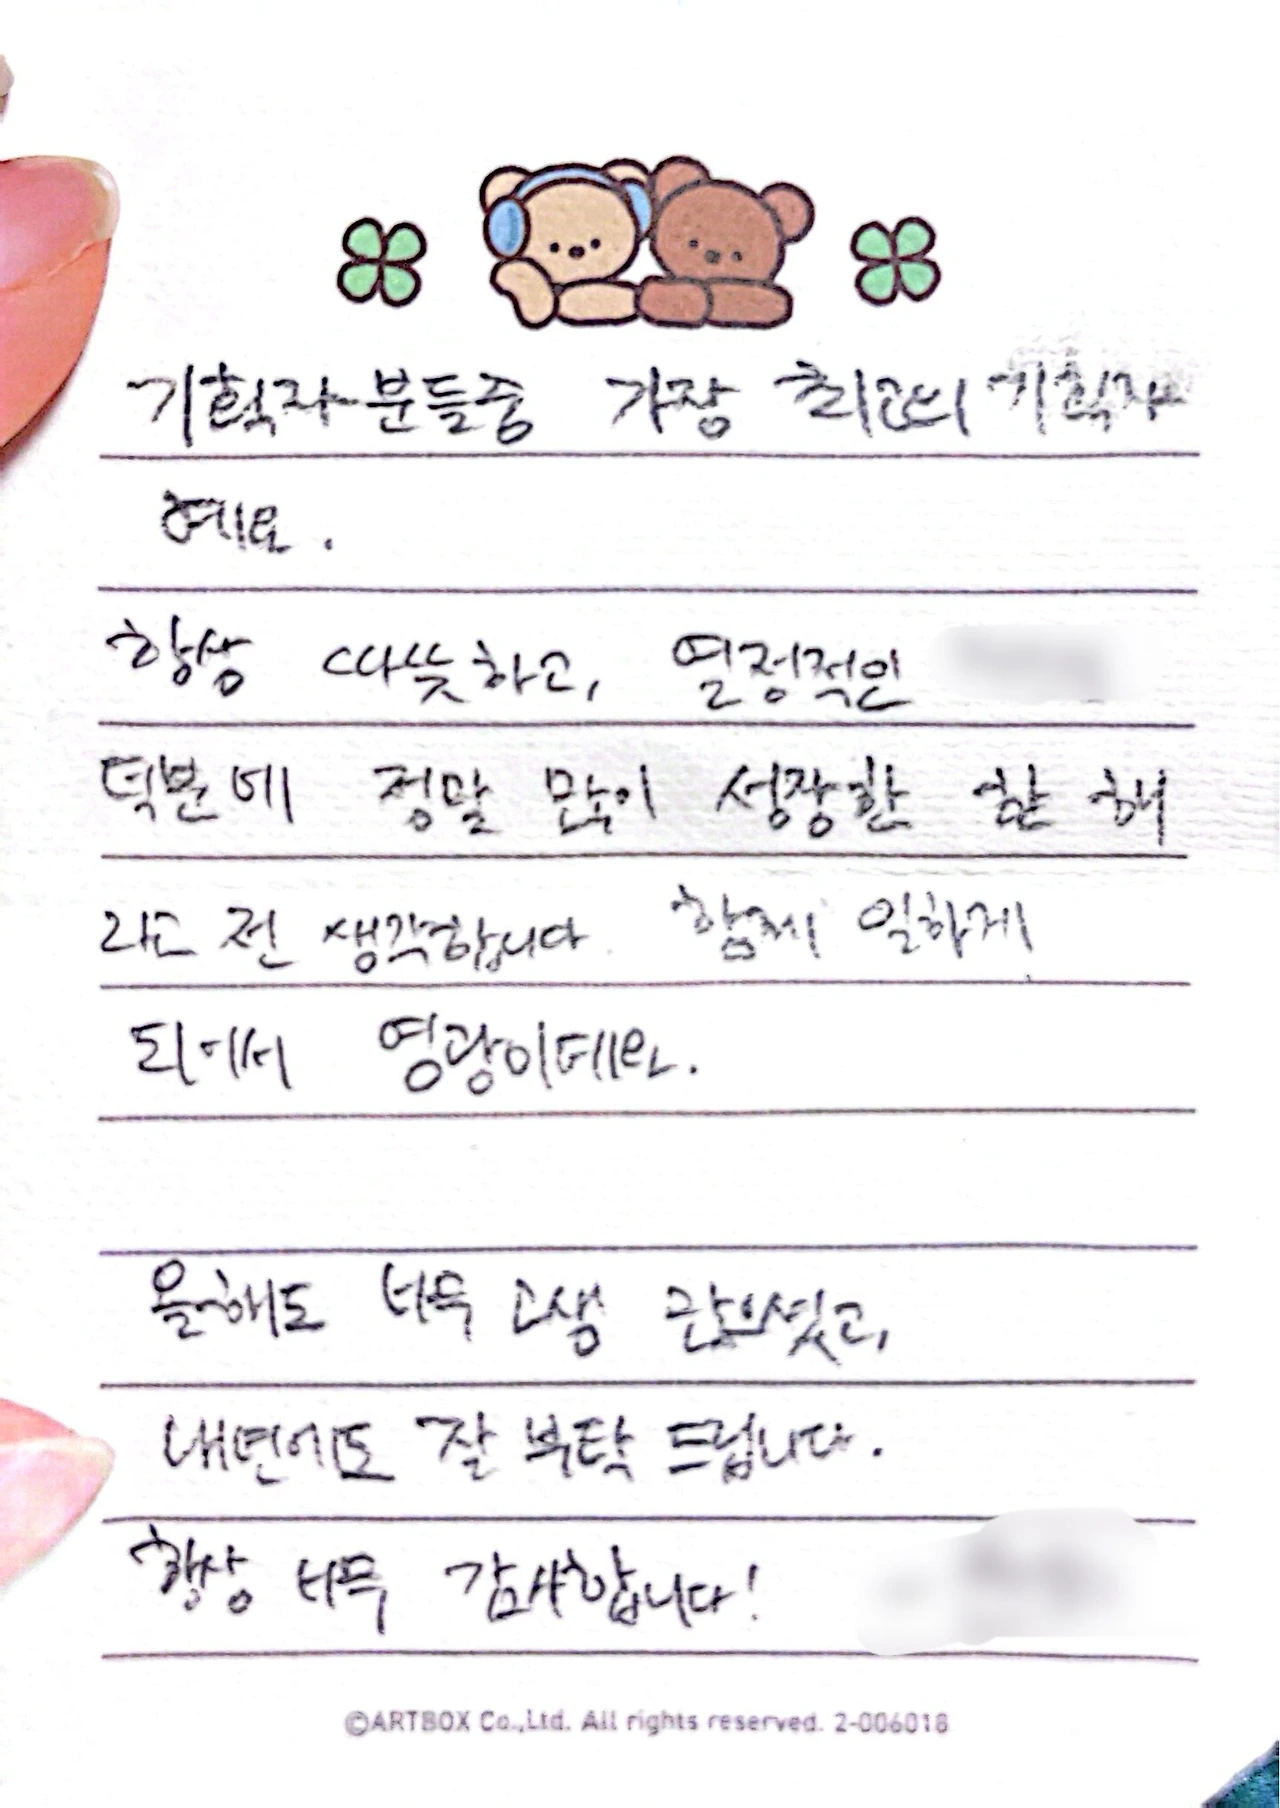 기획자분들중 가장 최고의 기획자
예요.
항상 따뜻하고, 열정적인
덕분에 정말 많이 성장한 한 해
라고 전 생각합니다. 함께 일하게
되어서 영광이예요.
올해도 너무 고생 많으셨고,
내년에도 잘 부탁 드립니다.
항상 너무 감사합니다!
©ARTBOX Co.,Ltd. All rights reserved. 2-006018